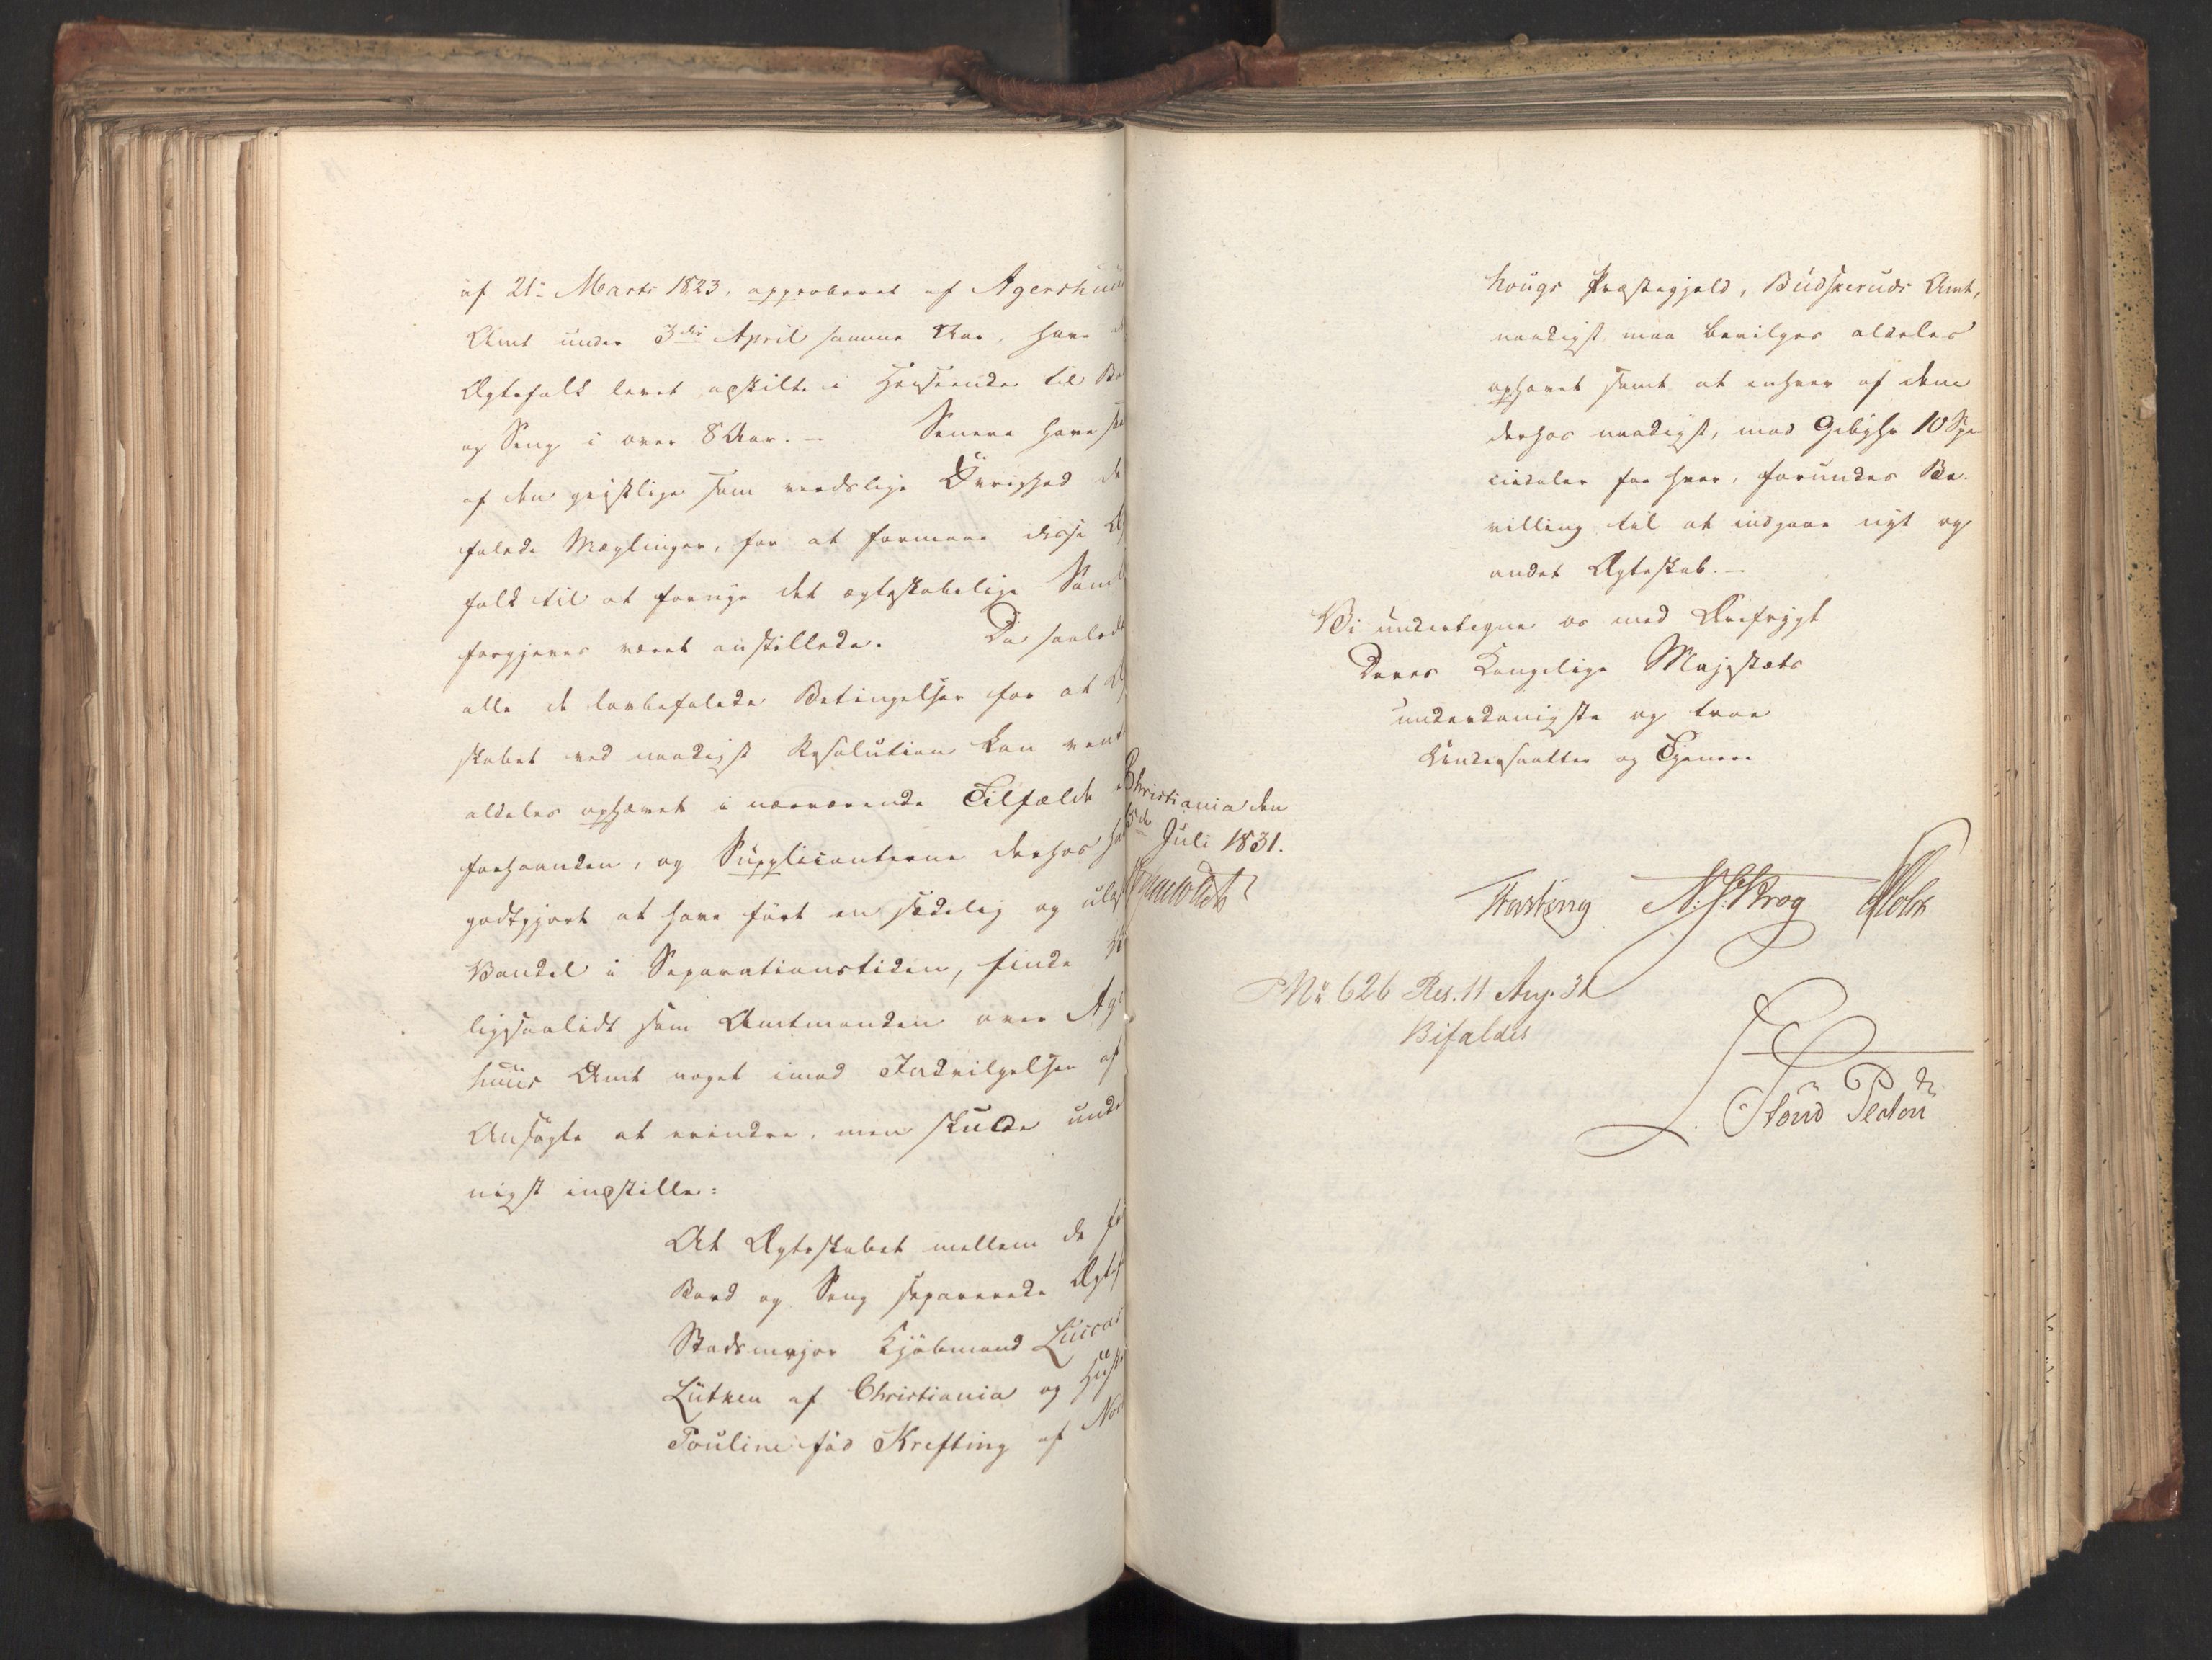 af 21: Marts 1823, approberet af Agershuus
Amt under 3die April samme Aar, have
Ægtefolk levet adskilte i Henseende til Bo
og Seng i over 8 Aar. — Senere have så
af den geistlige som verdslige Övrighed de
falede Mæglinger, for at formaae disse Æ
folk til at fornye det ægteskabelige Saml
forgjeves været anstillede. Da saalede
alle de lovbefalede Betingelser for at Æ
skabet ved naadigst Resolution kan vent
aldeles ophævet i nærværende Tilfælde
forhaanden, og Supplicanterne derhos ha
godtgjort at have fört en sædelig og ulas
Vandel i Separationstiden, finde Vi
ligesaalidt som Amtmanden over Ag
huus Amt noget imod Indvilgelsen af
Ansögte at erindre, men skulde unde
nigst indstille:
At Ægteskabet mellem de fr
Bord og Seng separerede Ægtef
Stadsmajor Kjöbmand Lucas
Lütken af Christiania og Hust
Pouline föd Krefting af Nor
hougs Præstegjeld, Budskeruds Amt,
naadigst maa bevilges aldeles
ophævet samt at enhver af dem
derhos naadigst, mod Gebyhr 10 Spe
ciedaler for hver, forundes Be-
villing til at indgaae nyt og
andet Ægteskab. —
Vi undertegne os med Ærefrygt
Deres Kongelige Majestæts
underdanigste og troe
Undersaatter og Tjenere
Christiania den
Juli 1831.
N. J. Krog
No 626 Res. 11 Aug. 31
Bifaldes